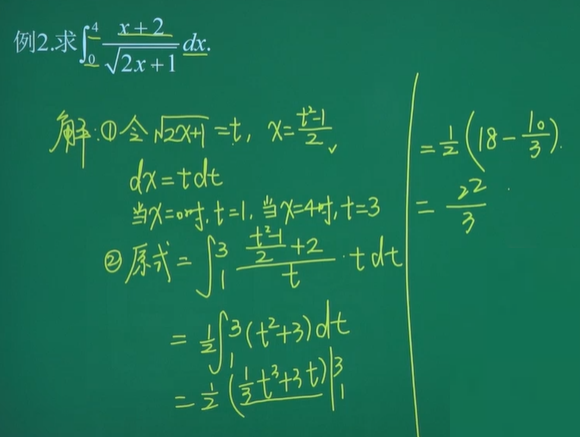 例2.求∫₀⁴ (x+2)/√(2x+1) dx.
解:①令√(2x+1)=t, x=(t²-1)/2
dx=tdt
当x=0时,t=1,当x=4时,t=3
②原式=∫₁³ ((t²-1)/2+2)/t · tdt
=1/2∫₁³(t²+3)dt
=1/2(1/3t³+3t)|₁³
=1/2(18-10/3).
=22/3